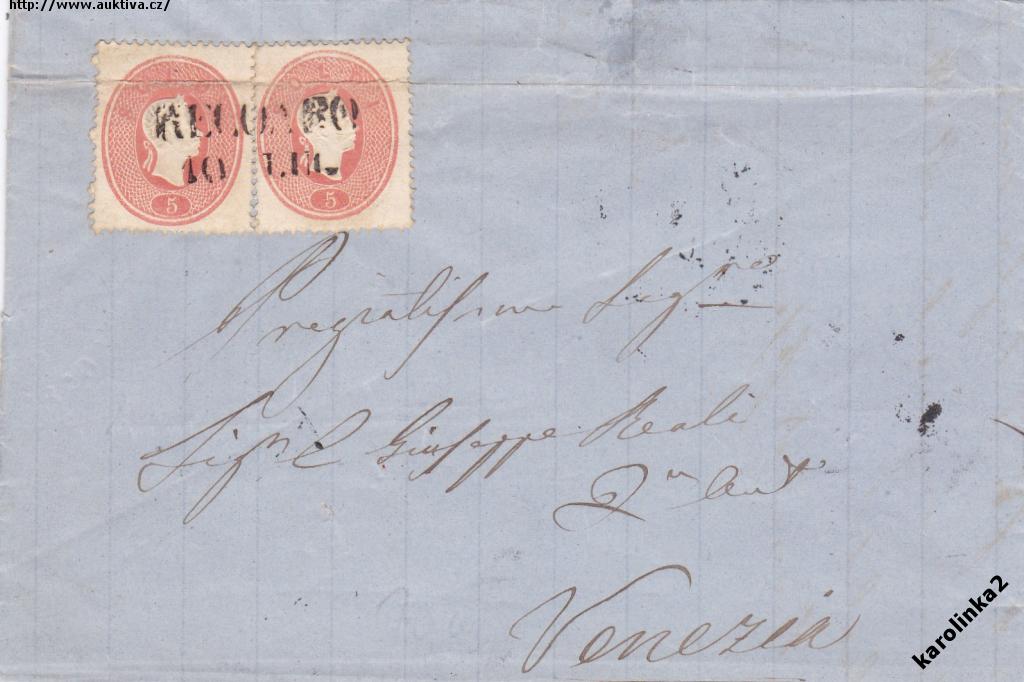 http://www.auktiva.cz/
RECOARO
10 LUG.
5 5
Pregiatissimo Sig.re
Sig.r Giuseppe Reali
Qm Ant
Venezia
karolinka2